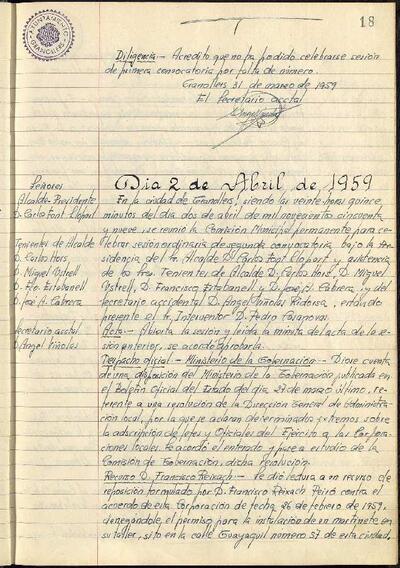 18
AYUNTAMIENTO
GRANOLLERS
Diligencia.- Acredito que no ha podido celebrarse sesión
de primera convocatoria por falta de número.
Granollers 31 de marzo de 1959
El Secretario acctal
Señores
Alcalde-Presidente
D. Carlos Font Llopart
Tenientes de Alcalde
D. Carlos Hors
D. Miguel Ustrell
D. Fco Estabanell
D. José A. Cabrera
Secretario acctal
D. Angel Viñolas
Dia 2 de Abril de 1959
En la ciudad de Granollers, siendo las veinte horas quince
minutos del día dos de abril de mil novecientos cincuenta
y nueve, se reunió la Comisión Municipal permanente para ce-
lebrar sesión ordinaria de segunda convocatoria, bajo la Pre-
sidencia del Sr. Alcalde D. Carlos Font Llopart y asistencia
de los Sres. Tenientes de Alcalde D. Carlos Hors, D. Miguel
Ustrell, D. Francisco Estabanell y D. José A. Cabrera, y del
secretario accidental D. Angel Viñolas Ridorsa, estando
presente el Sr. Interventor D. Pedro Casanovas.
Acta.- Abierta la sesión y leída la minuta del acta de la se-
sión anterior, se acordó aprobarla.
Despacho oficial.- Ministerio de la Gobernación.- Dióse cuenta
de una disposición del Ministerio de la Gobernación publicada en
el Boletín Oficial del Estado del día 27 de marzo último, re-
ferente a una resolución de la Dirección General de Administra-
ción local, por la que se aclaran determinados extremos sobre
la adscripción de Jefes y Oficiales del Ejército a las Corpo-
raciones locales. Se acordó el enterado y pase a estudio de la
Comisión de Gobernación, dicha resolución.
Recurso D. Francisco Reixach.- Se dió lectura a un recurso de
reposición formulado por D. Francisco Reixach Peiró contra el
acuerdo de esta Corporación de fecha 26 de febrero de 1959,
denegándole el permiso para la instalación de un martinete en
su taller, sito en la calle Guayaquil número 57 de esta ciudad,